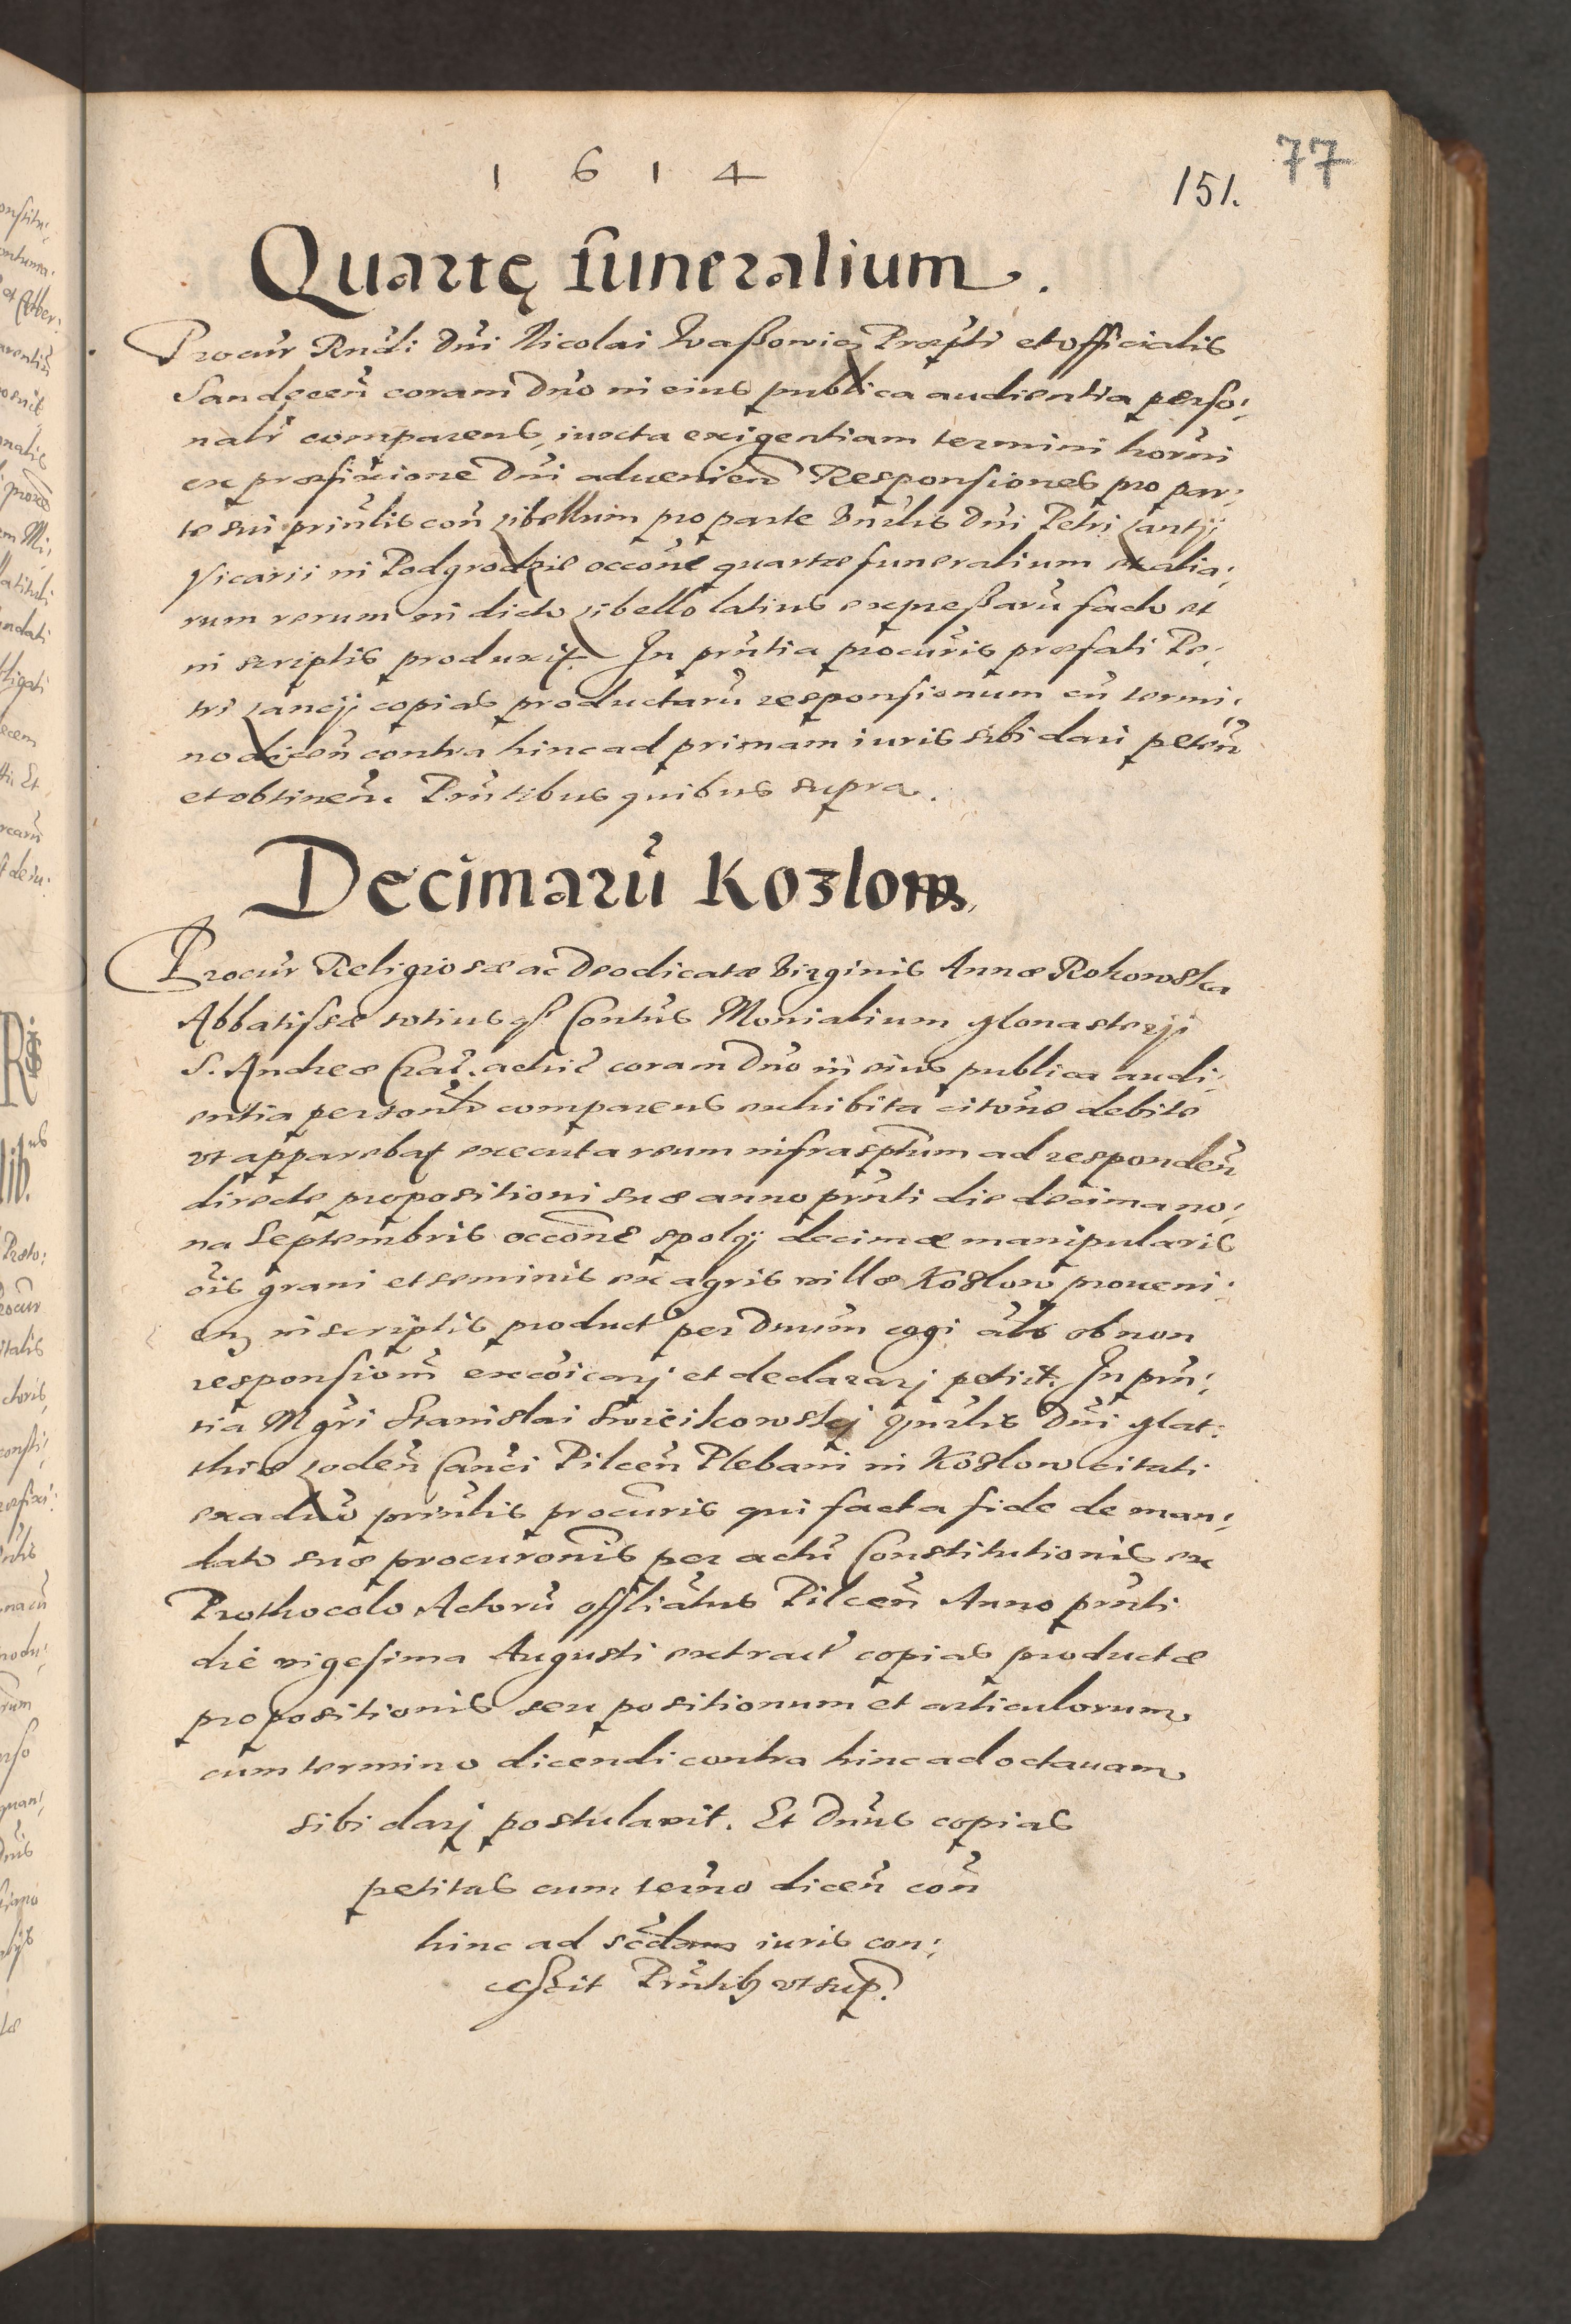 1 6 1 4
151.
77
Quartę funeralium.
Procur Rndi Dni Nicolai Præpti et officialis
Sandecen coram Dno in eius publica audientia perso:
nalr comparens, iuxta exigentiam termini horni
ex præfixione Dni advenien Responsiones pro par:
te sui prinlis con libellum pro parte Dni Petri Lantij
Vicarii in Podgrodzie occone quartæ funeralium et alia:
rum rerum in dicto libello latius expreßaru facto et
in scriptis produxit. In prntia procuris præfati Pe:
tri copias productaru responsionum cu termi:
no dicen contra hinc ad primam iuris sibi dari peten
et obtinen. Prntibus quibus supra.
Decimaru Kozlow
Procur Religiosæ ac Deodicatæ Virginis Annæ Rokowska
Abbatissæ totiusq Contus Monialium Monasterij
S. Andreæ Crac. coram Dno in eius publica audi:
entia personlr comparens exhibita citone debite
ut apparebat executa reum infrasptum ad responden
directe propositioni suæ anno prnti die decima no:
na Septembris occone spolij decimæ manipularis
ois grani et seminis ex agris villæ Kozlow proveni:
en in scriptis product per Dnum cogi als ob non
responsiom excoicarj et declararj petiit. In prn:
tia Mgri Stanislai Dni Mat:
thiæ Canci Pilcen Plebani in Kozlow citati
prinlis procuris qui facta fide de man:
dato suæ procuronis per actu Constitutionis ex
Prothocolo Actoru offliatus Pilcen Anno prnti
die vigesima Augusti extract copias productæ
propositionis seu positionum et articulorum
cum termino dicendi contra hinc ad octavam
sibi darj postulavit. Et Dnus copias
petitas cum termo dicen con
hinc ad scdam iuris con:
ceßit Prntibs ut sup.